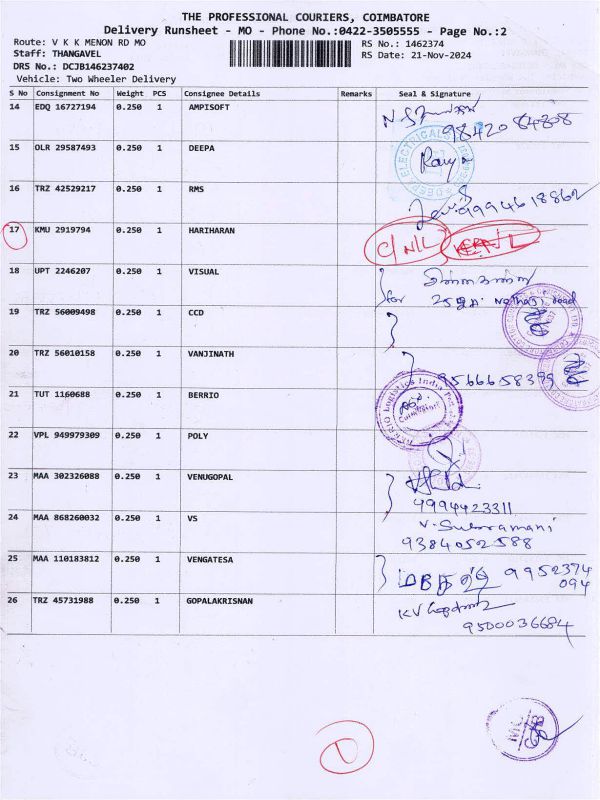 THE PROFESSIONAL COURIERS, COIMBATORE
Delivery Runsheet - MO - Phone No.:0422-3505555 - Page No.:2
Route: V K K MENON RD MO RS No.: 1462374
Staff: THANGAVEL RS Date: 21-Nov-2024
DRS No.: DCJB146237402
Vehicle: Two Wheeler Delivery
S No Consignment No Weight PCS Consignee Details Remarks Seal & Signature
14 EDQ 16727194 0.250 1 AMPISOFT
98420 84808
15 OLR 29587493 0.250 1 DEEPA
DEEP ELECTRICALS
16 TRZ 42529217 0.250 1 RMS
9994618862
17 KMU 2919794 0.250 1 HARIHARAN C/NIL
18 UPT 2246207 0.250 1 VISUAL
for
road
19 TRZ 56009498 0.250 1 CCD
20 TRZ 56010158 0.250 1 VANJINATH
9566658399
21 TUT 1160688 0.250 1 BERRIO
BERRIO Logistics India Pvt
22 VPL 949979309 0.250 1 POLY
23 MAA 302326088 0.250 1 VENUGOPAL
9994423311
24 MAA 868260032 0.250 1 VS V. Subramani
9384052588
25 MAA 110183812 0.250 1 VENGATESA 9952374
094
26 TRZ 45731988 0.250 1 GOPALAKRISNAN KV
9500036684
1